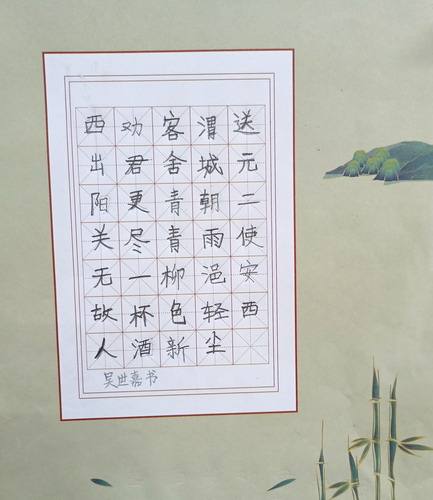 送元二使安西
渭城朝雨浥轻尘
客舍青青柳色新
劝君更尽一杯酒
西出阳关无故人
吴世嘉书